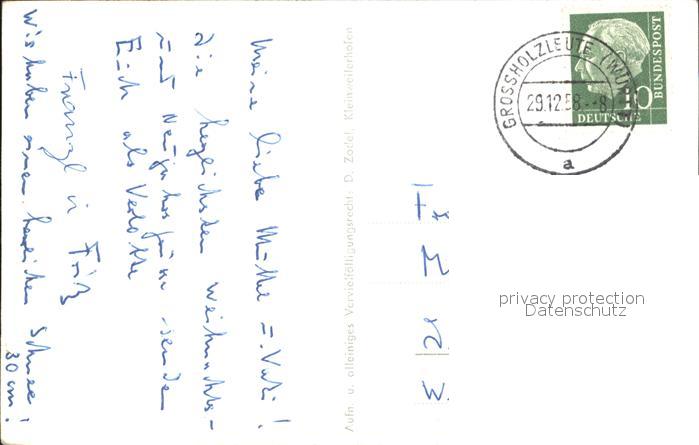 Meine liebe Mutter u. Vati!
Die herzlichsten Weihnachts-
und Neujahrsgrüsse senden
Euch als Verlobte
Franzl u Fritz
Wir haben einen herrlichen Schnee,
30 cm!
Aufn. u. alleiniges Vervielfältigungsrecht: D. Zodel, Kleinweilerhofen
GROSSHOLZLEUTE (WÜRTT)
29.12.58.--8
a
10
DEUTSCHE
BUNDESPOST
privacy protection
Datenschutz